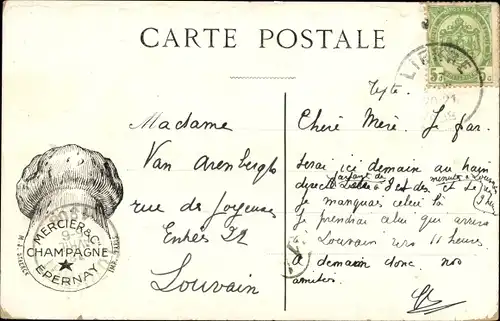 CARTE POSTALE
LIERRE
5c 5c
Madame
Van Arenbergh
rue de Joyeuses
Entrées 22
Louvain
MERCIER & Cie
CHAMPAGNE
★
EPERNAY
Chère Mère. Je par-
serai ici demain au
direct et
Je manquais celui là
Je prendrai celui qui arrive
à Louvain vers 11 heures
A demain donc nos
amitiés